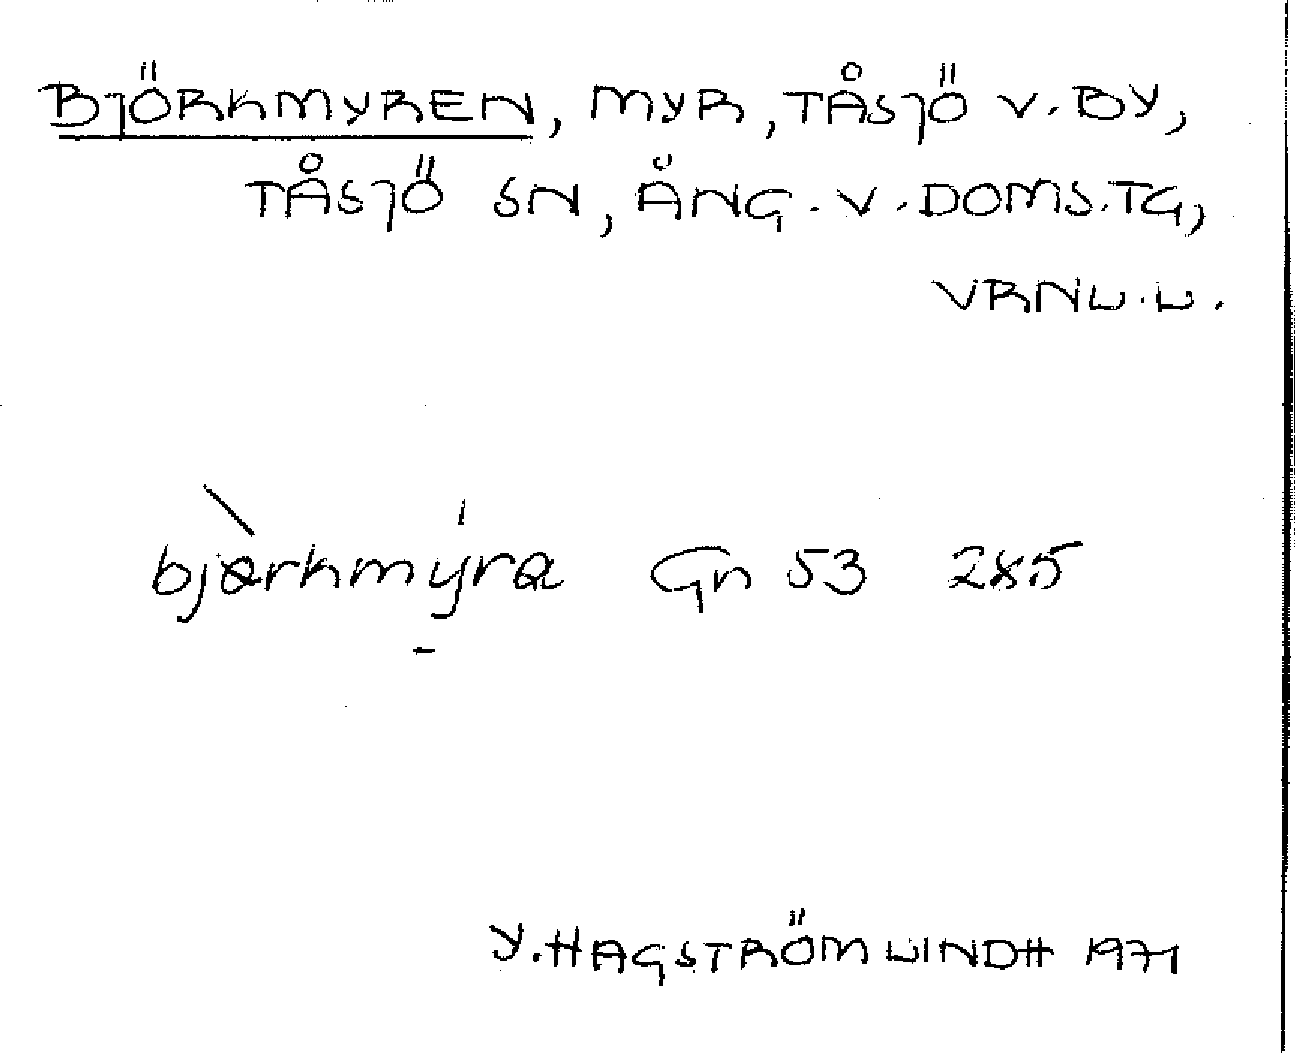 BJÖRKMYREN, MYR, TÅSJÖ V. BY,
TÅSJÖ SN, ÅNG. V. DOMS. TG,
VRNL. L.
bjərkmýra Gn 53 285
Y. HAGSTRÖM LINDH 1971